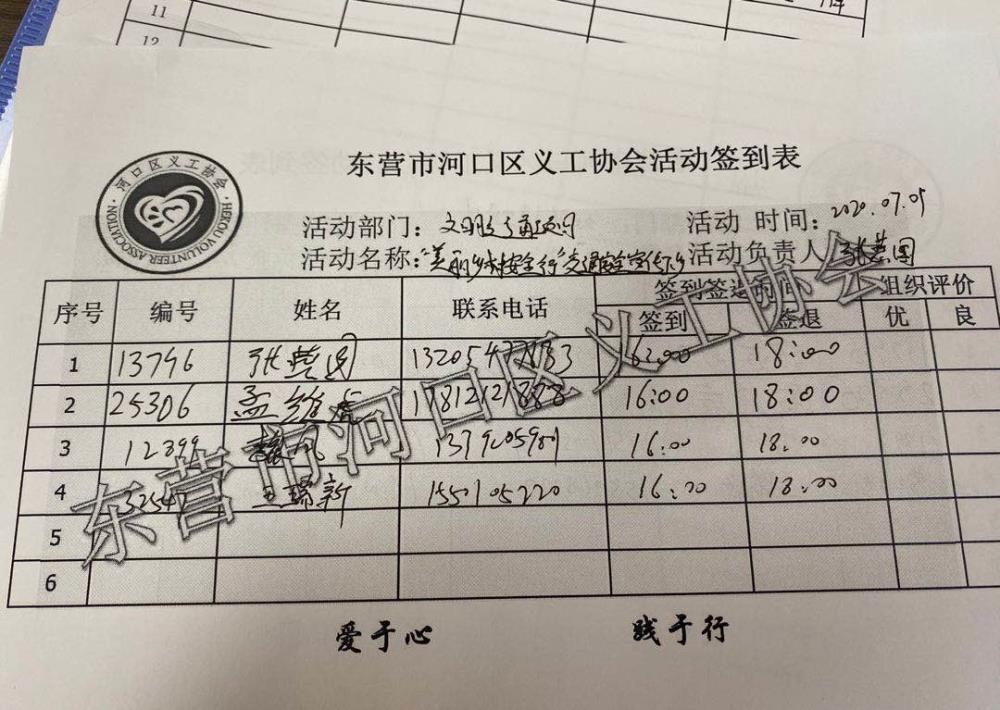 11
12
河口区义工协会
HEKOU VOLUNTEER ASSOCIATION
东营市河口区义工协会活动签到表
活动部门：文明交通项目 活动 时间：2020.07.05
活动名称："美丽乡村按全行"交通安全宣传 活动负责人
序号 编号 姓名 联系电话 签到签退时间 组织评价
签到 签退 优 良
1 13796 张 16:00 18:00
2 25306 孟维虎 17812121888 16:00 18:00
3 16:00 18:00
4 王瑞新 16:00 18:00
5
6
东营市河口区义工协会
爱于心 践于行